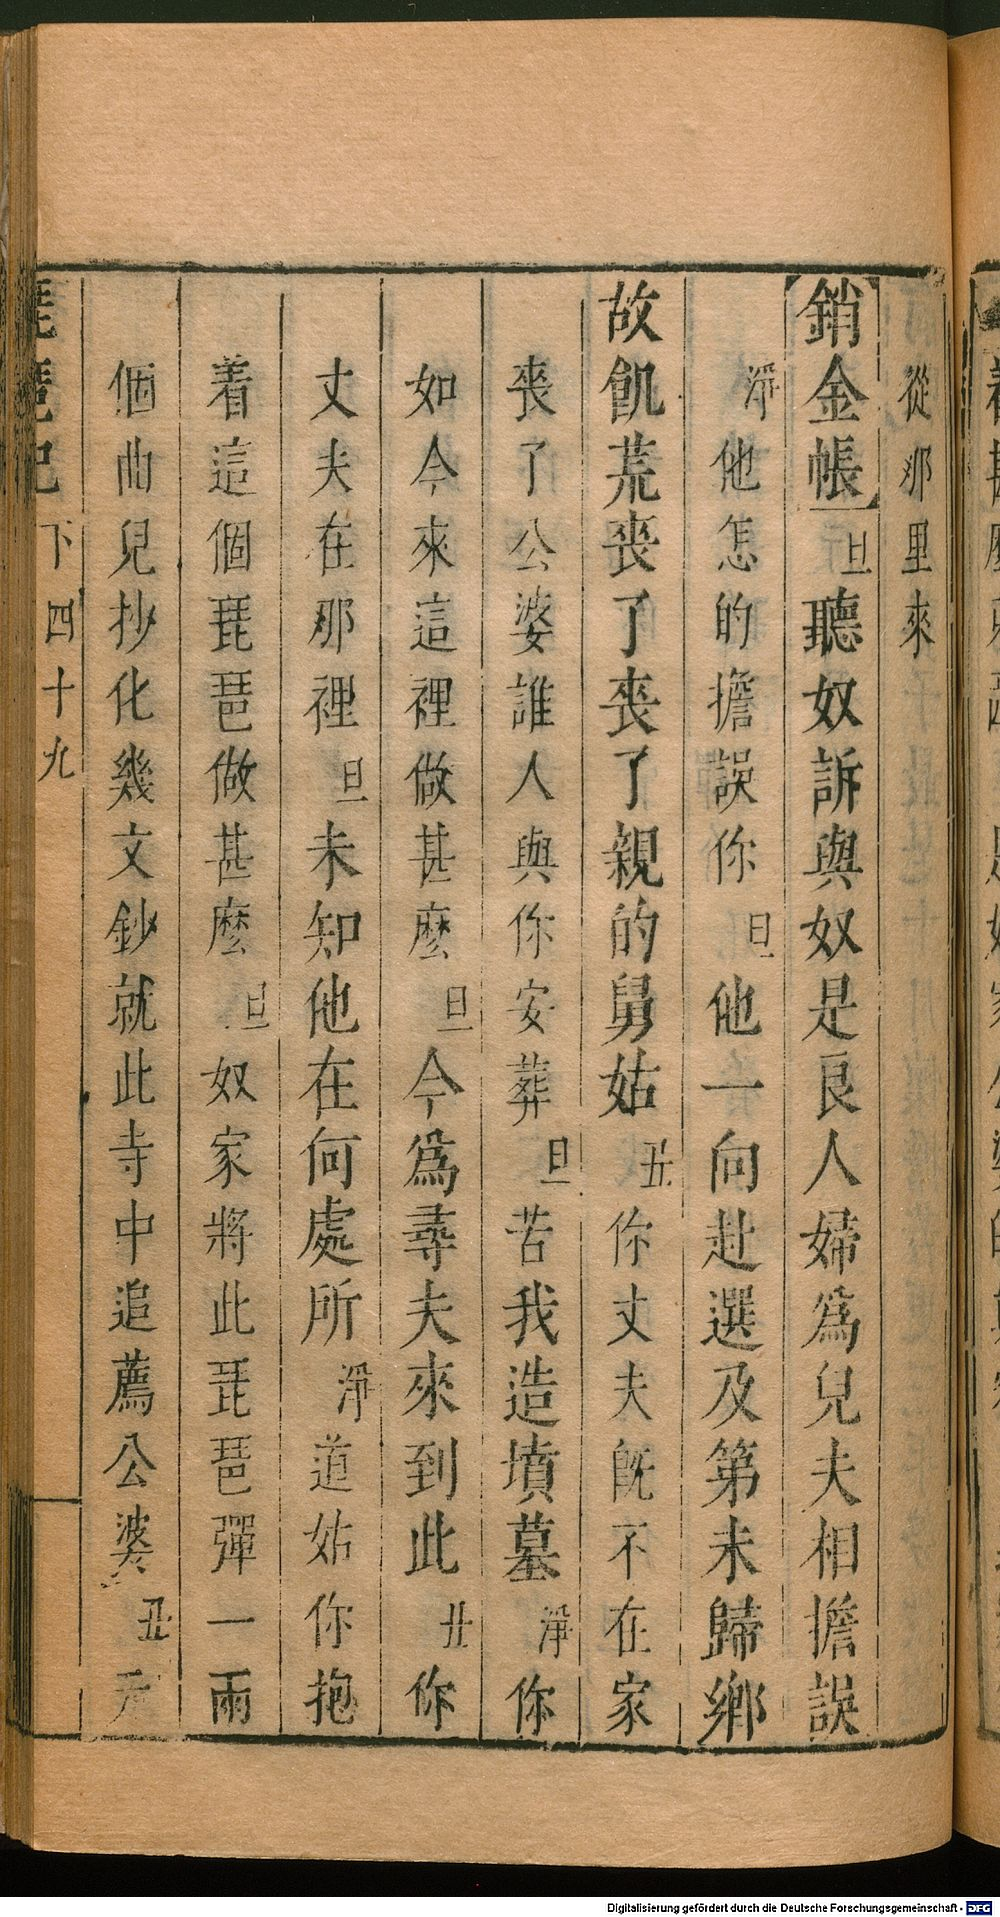 從那里來
【銷金帳】旦聽奴訴與奴是良人婦爲兒夫相擔誤
淨他怎的擔誤你旦他一向赴選及第未歸鄉
故飢荒丧了丧了親的舅姑丑你丈夫旣不在家
丧了公婆誰人與你安葬旦苦我造墳墓淨你
如今來這裡做甚麽旦今爲尋夫來到此丑你
丈夫在那裡旦未知他在何處所淨道姑你抱
着這個琵琶做甚麽旦奴家將此琵琶彈一兩
個曲兒抄化幾文鈔就此寺中追薦公婆丑元
琵琶記 下 四十九
Digitalisierung gefördert durch die Deutsche Forschungsgemeinschaft - DFG